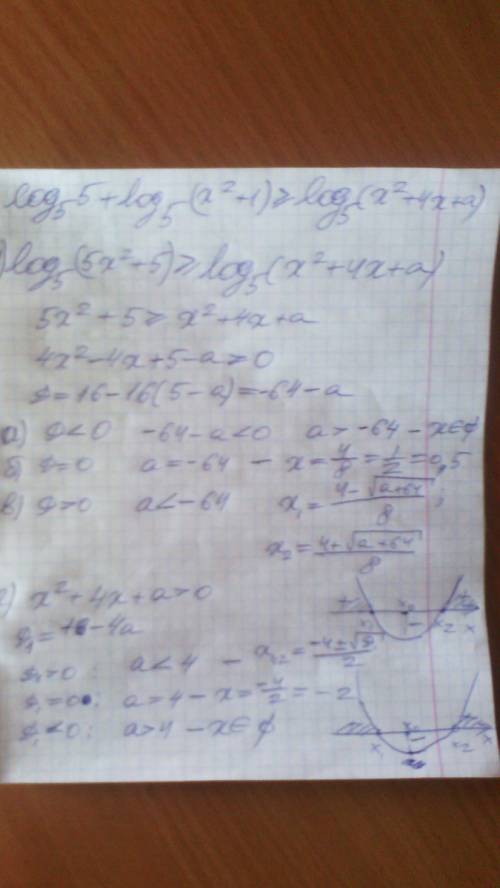 log₅5 + log₅(x²+1) ≥ log₅(x²+4x+a)
) log₅(5x²+5) ≥ log₅(x²+4x+a)
5x²+5 ≥ x²+4x+a
4x²-4x+5-a ≥ 0
D = 16-16(5-a) = -64-a
а) D<0 -64-a<0 a>-64 - x∈∅
б) D=0 a=-64 - x=4/8=1/2=0,5
в) D>0 a<-64 x₁=(4-√(a+64))/8;
x₂=(4+√(a+64))/8
) x²+4x+a>0
D₁=16-4a
D₁>0: a<4 - x₁,₂=(-4±√D)/2
D₁=0: a=4 - x=-4/2=-2
D₁<0: a>4 - x∈∅
x₁ x₂ x
x₁ x₂ x